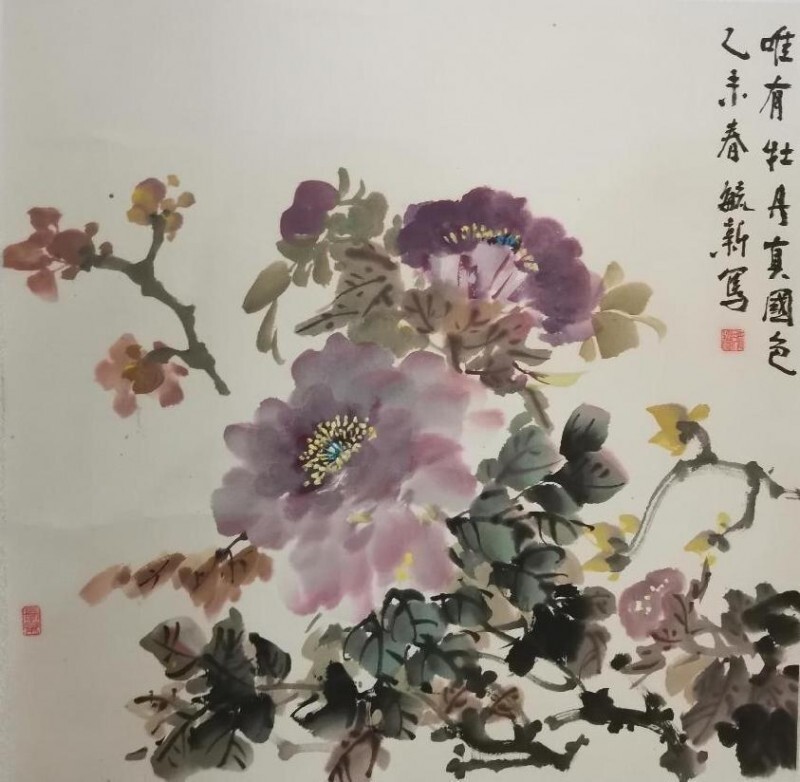 唯有牡丹真國色
乙未春毓新写